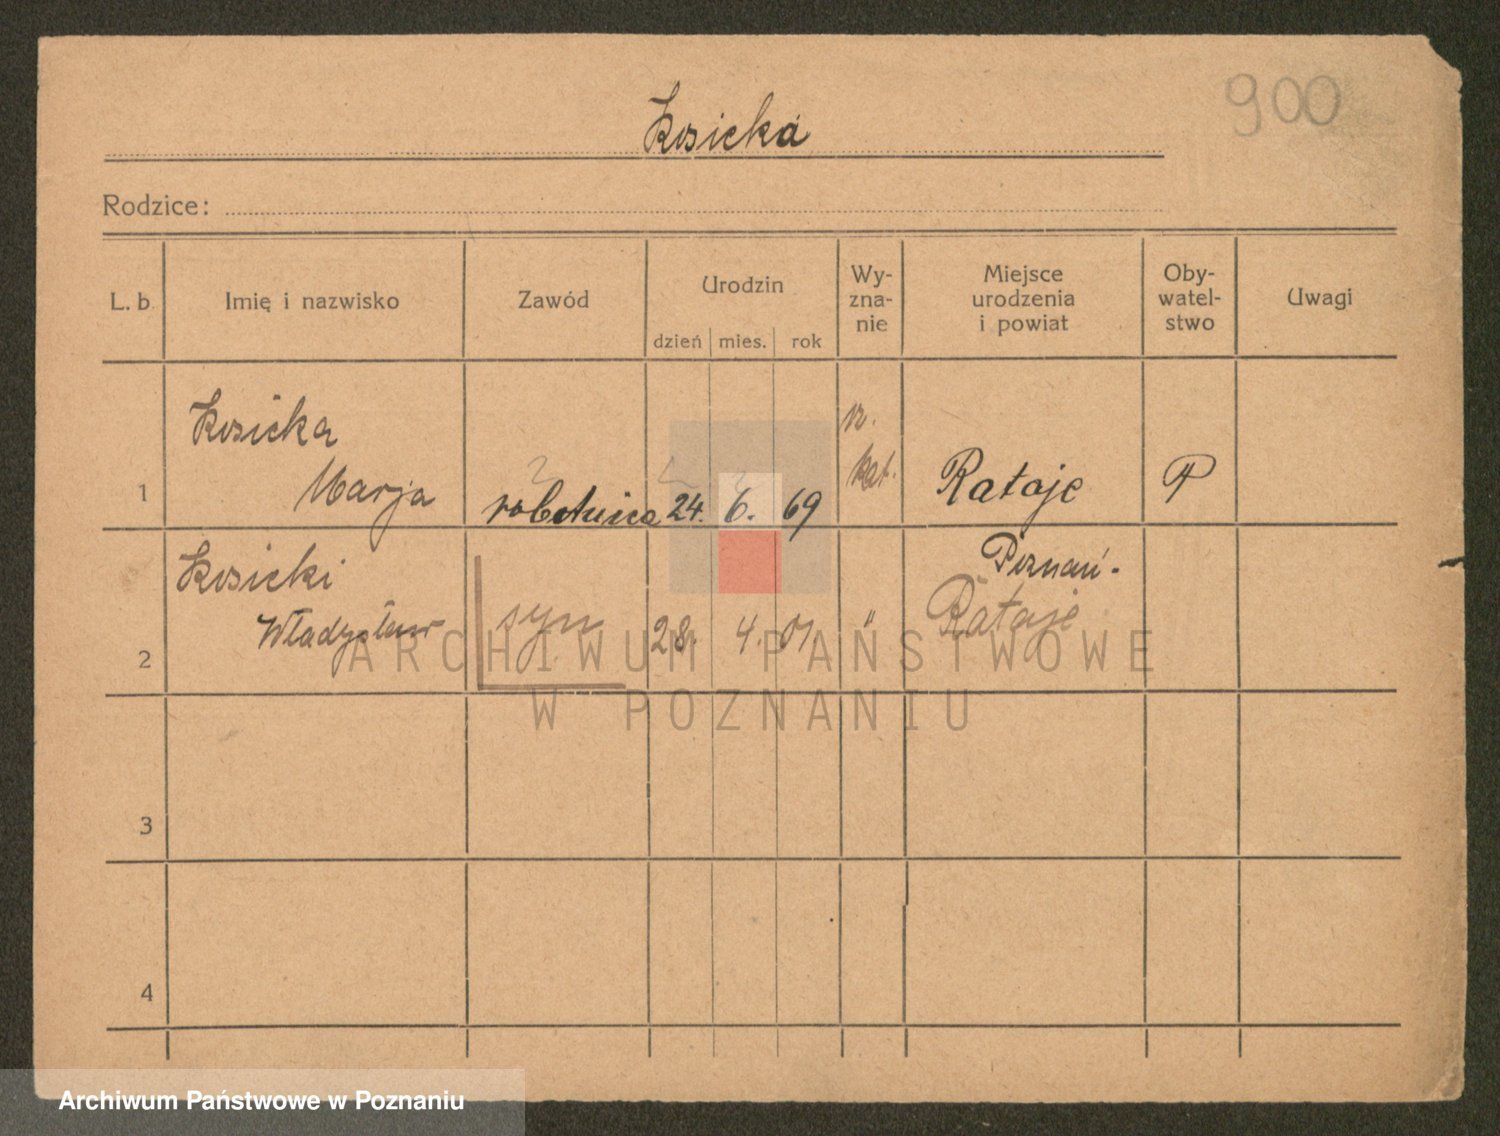 900
Kosicka
Rodzice:
L. b. Imię i nazwisko Zawód Urodzin dzień mies. rok Wy-zna-nie Miejsce urodzenia i powiat Oby-watel-stwo Uwagi
Kosicka
1 Marja robotnica 24. 6. 69 rz. kat. Rataje P
Kosicki Poznań.
2 Władysław syn 28. 4. 01. " Rataje
3
4
ARCHIWUM PAŃSTWOWE
W POZNANIU
Archiwum Państwowe w Poznaniu